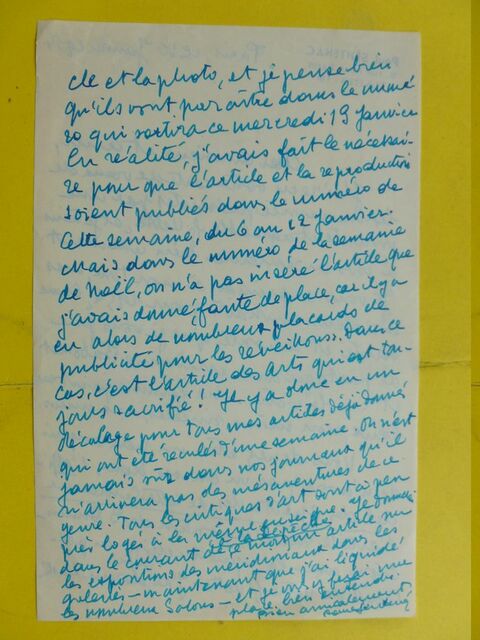 cle et la photo, et je pense bien
qu'ils vont paraître dans le numé
ro qui sortira ce mercredi 13 janvier
En réalité, j'avais fait le nécessai-
re pour que l'article et la reproduction
soient publiés dans le numéro de
cette semaine, du 6 au 12 janvier.
Mais dans le numéro de la semaine
de Noël, on n'a pas inséré l'article que
j'avais donné faute de place, car il y a
eu alors de nombreux placards de
publicité pour les réveillons. Dans ce
cas, c'est l'article des Arts qui est tou-
jours sacrifié! Il y a donc eu un
décalage pour tous mes articles déjà donnés
qui ont été reculés d'une semaine. On n'est
jamais sûr dans nos journaux qu'il
n'arrivera pas des mésaventures de ce
genre. Tous les critiques d'art sont à peu
près logés à la même enseigne. Je
dans le courant de article sur
les expositions des méridionaux dans les
galeries - maintenant que j'ai liquidé
les nombreux Salons - et je vous y
place, bien entendu.
Bien amicalement